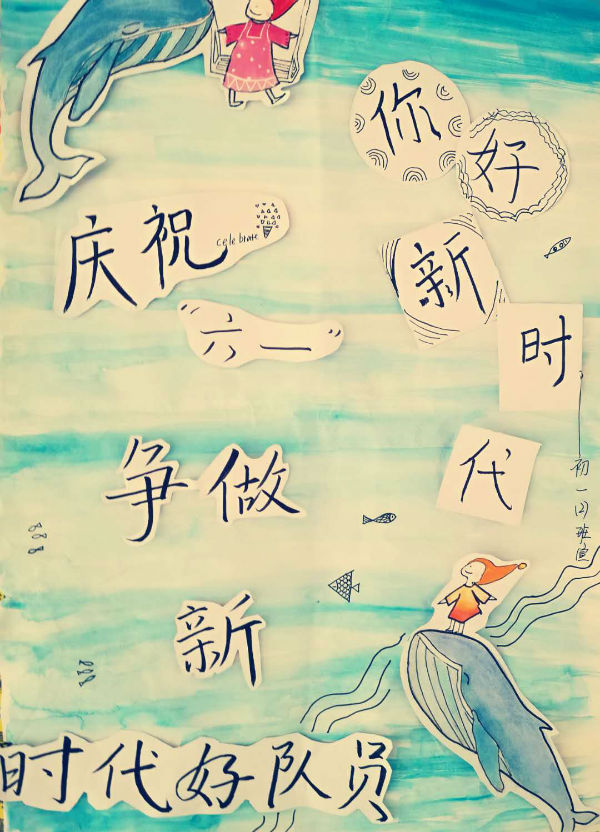 你好
新
时
代
庆祝
celebrate
六一
争做
新
时代好队员
初一(2)班宣